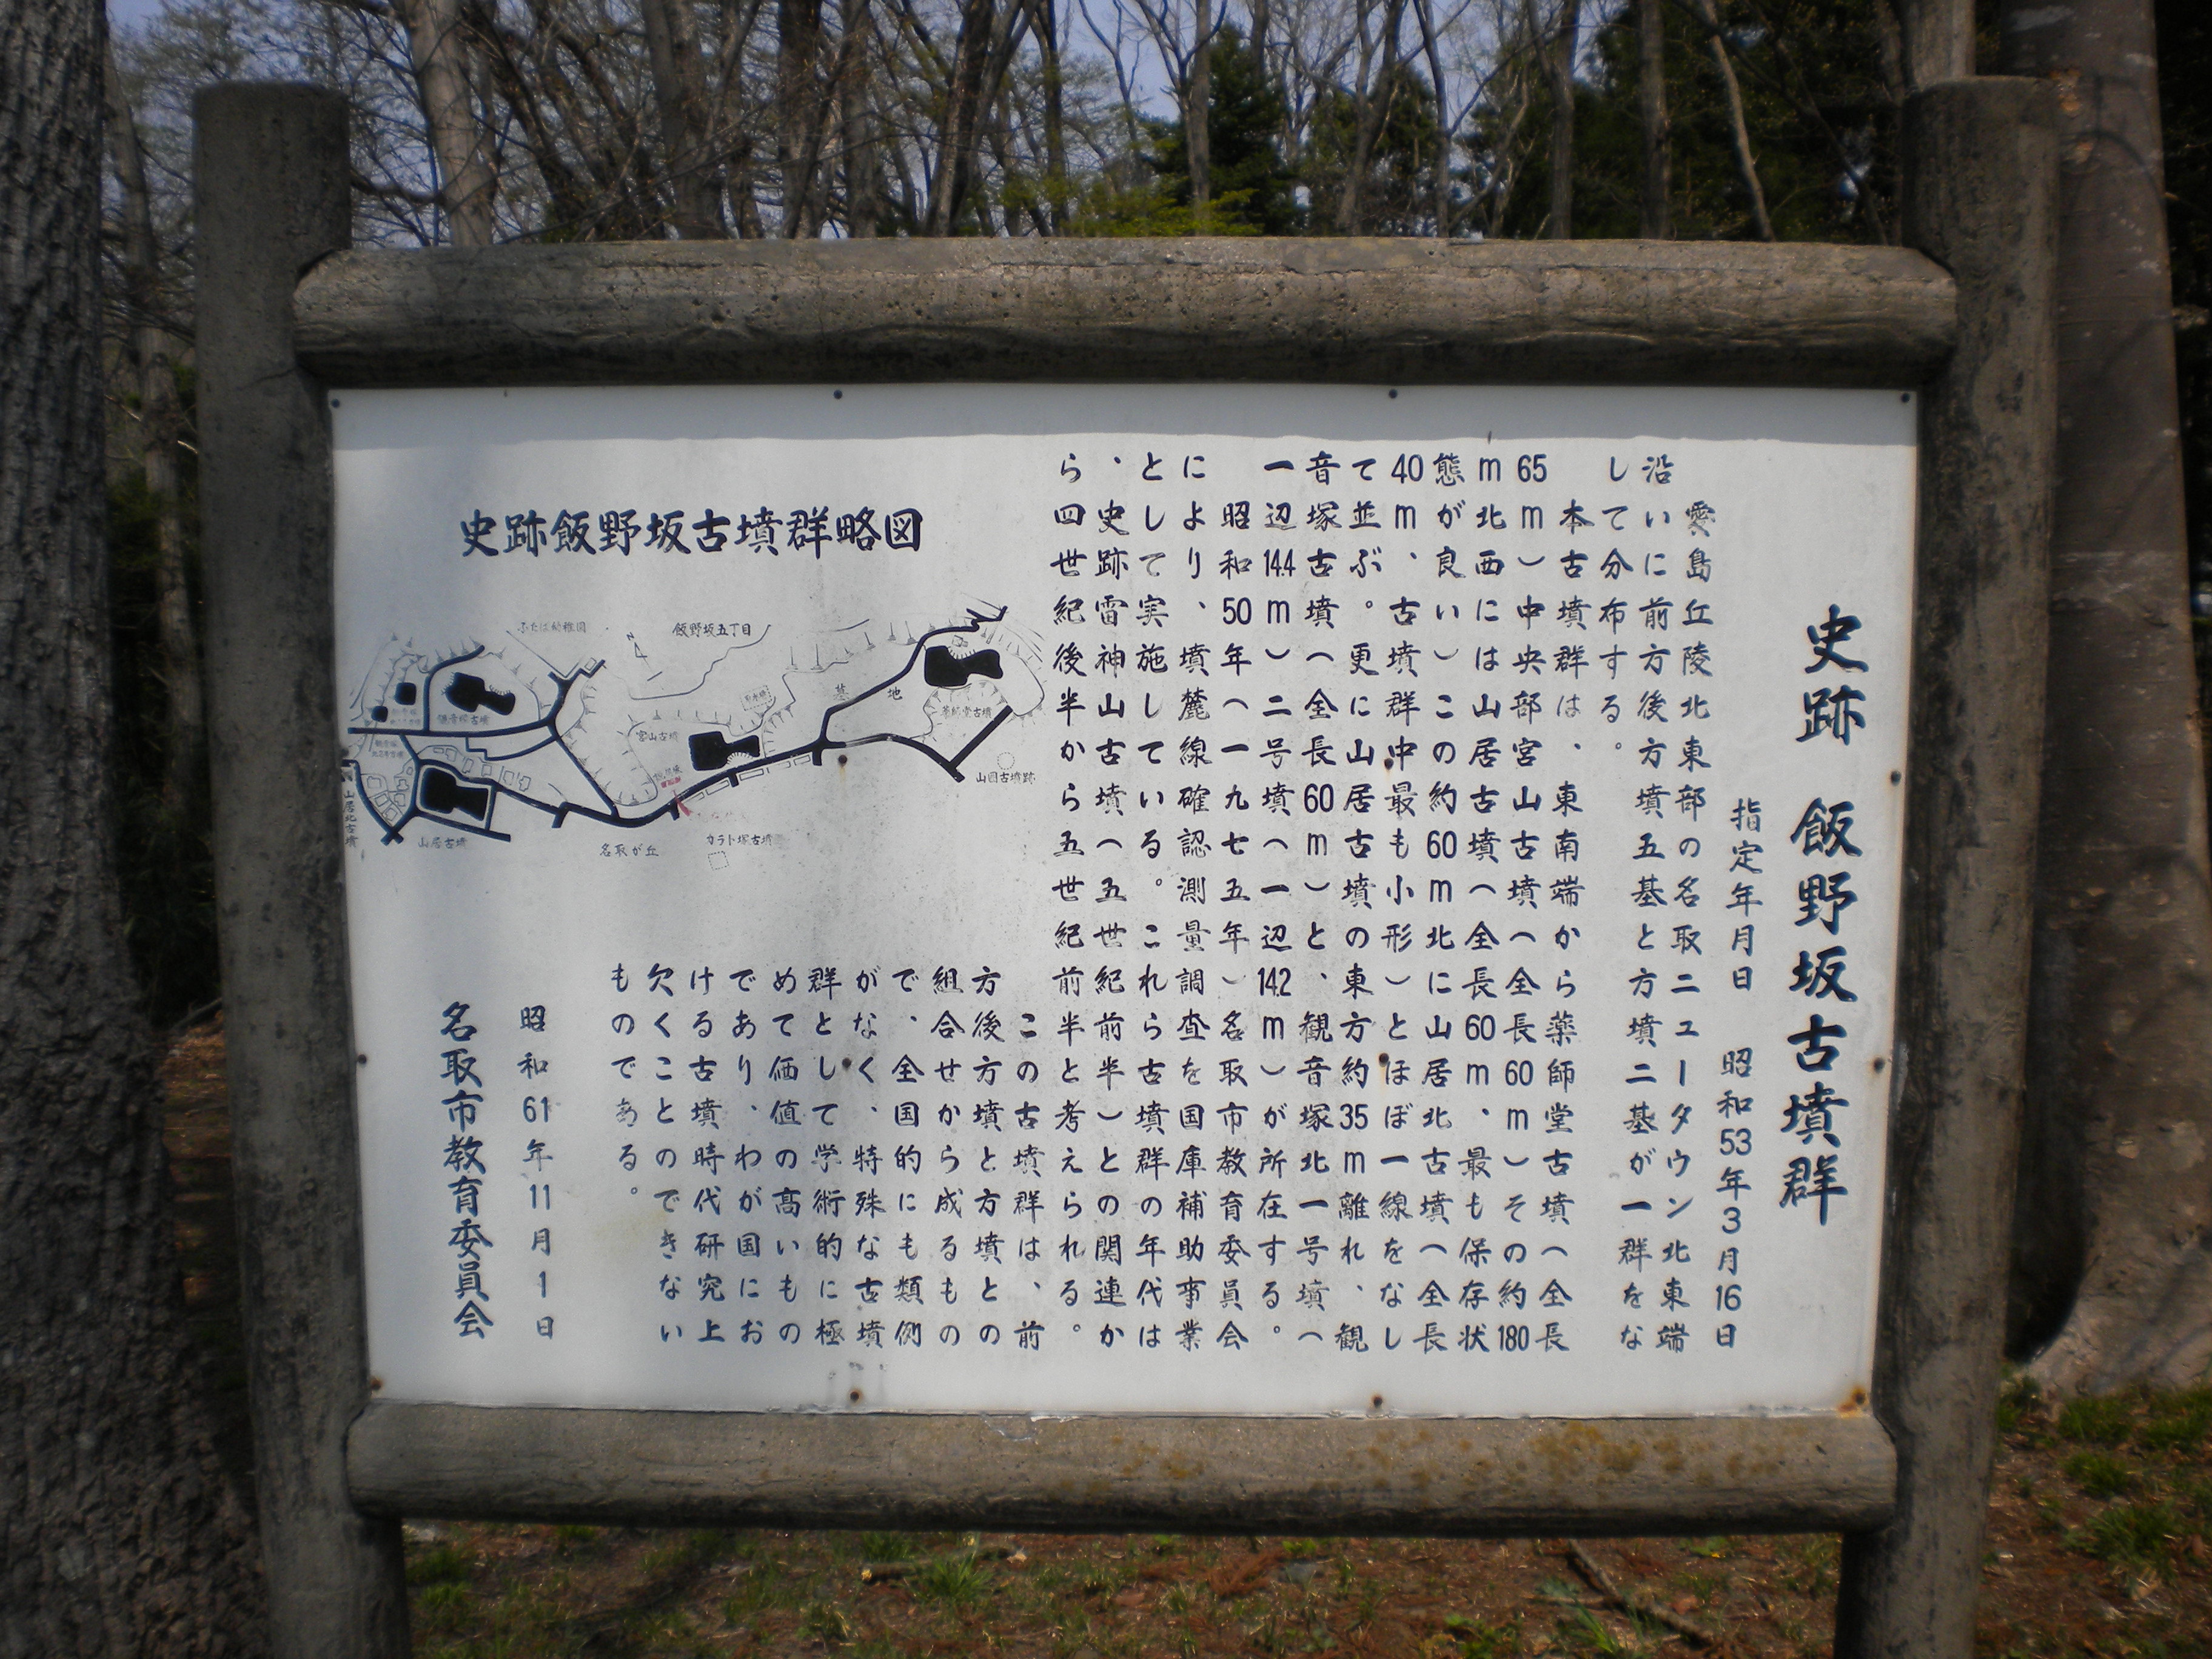 史跡 飯野坂古墳群
指定年月日 昭和53年3月16日
愛島丘陵北東部の名取ニュータウン北東端
沿いに前方後方墳五基と方墳二基が一群をな
して分布する。
本古墳群は、東南端から薬師堂古墳(全長
65m)中央部宮山古墳(全長60m)その約180
m北西には山居古墳(全長60m、最も保存状
態が良い)この約60m北に山居北古墳(全長
40m、古墳群中最も小形)とほぼ一線をなし
て並ぶ。更に山居古墳の東方約35m離れ、観
音塚古墳(全長60m)と、観音塚北一号墳(
一辺14.4m)二号墳(一辺14.2m)が所在する。
昭和50年(一九七五年)名取市教育委員会
により、墳麓線確認測量調査を国庫補助事業
として実施している。これら古墳群の年代は
、史跡雷神山古墳(五世紀前半)との関連か
ら四世紀後半から五世紀前半と考えられる。
この古墳群は、前
方後方墳と方墳との
組合せから成るもの
で、全国的にも類例
がなく、特殊な古墳
群として学術的に極
めて価値の高いもの
であり、わが国にお
ける古墳時代研究上
欠くことのできない
ものである。
昭和61年11月1日
名取市教育委員会
史跡飯野坂古墳群略図
ふたば幼稚園
N
飯野坂五丁目
墓地
薬師堂古墳
観音塚古墳
宮山古墳
山囲古墳跡
山居北古墳
山居古墳
名取が丘
カラト塚古墳